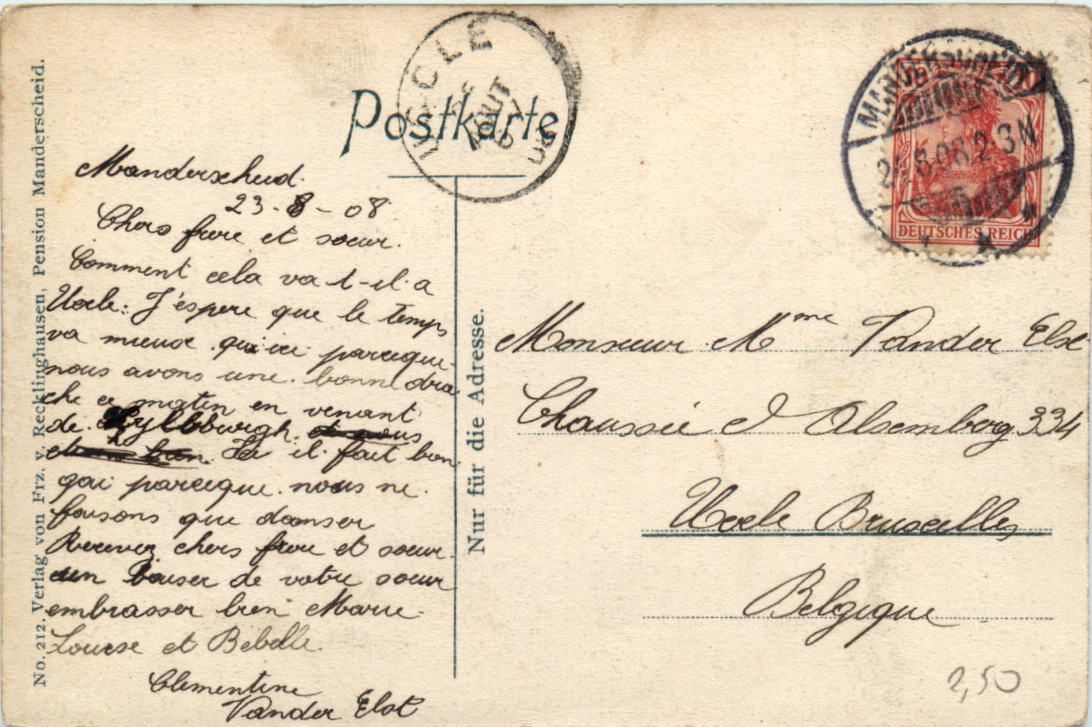 No. 212. Verlag von Frz. v. Recklinghausen, Pension Manderscheid.
Postkarte
UCCLE
AOUT
08
MANDERSCHEID
8.08.2-3N
DEUTSCHES REICH
Manderscheid.
23-8-08
Chers frere et soeur.
Comment cela va t-il a
Uccle: J'espere que le temps
va mieux qu'ici parceque
nous avons une bonne dra
che ce matin en venant
de Kyllburgh. et nous
bien. Ici il fait bon
gai parceque nous ne
faisons que danser
Recevez chers frere et soeur
un baiser de votre soeur
embrasser bien Marie
Louise et Bebelle.
Clementine
Vander Elst
Nur für die Adresse.
Monsieur Mme Vander Elst
Chaussée d'Alsemberg 334
Uccle Bruxelles
Belgique
2,50